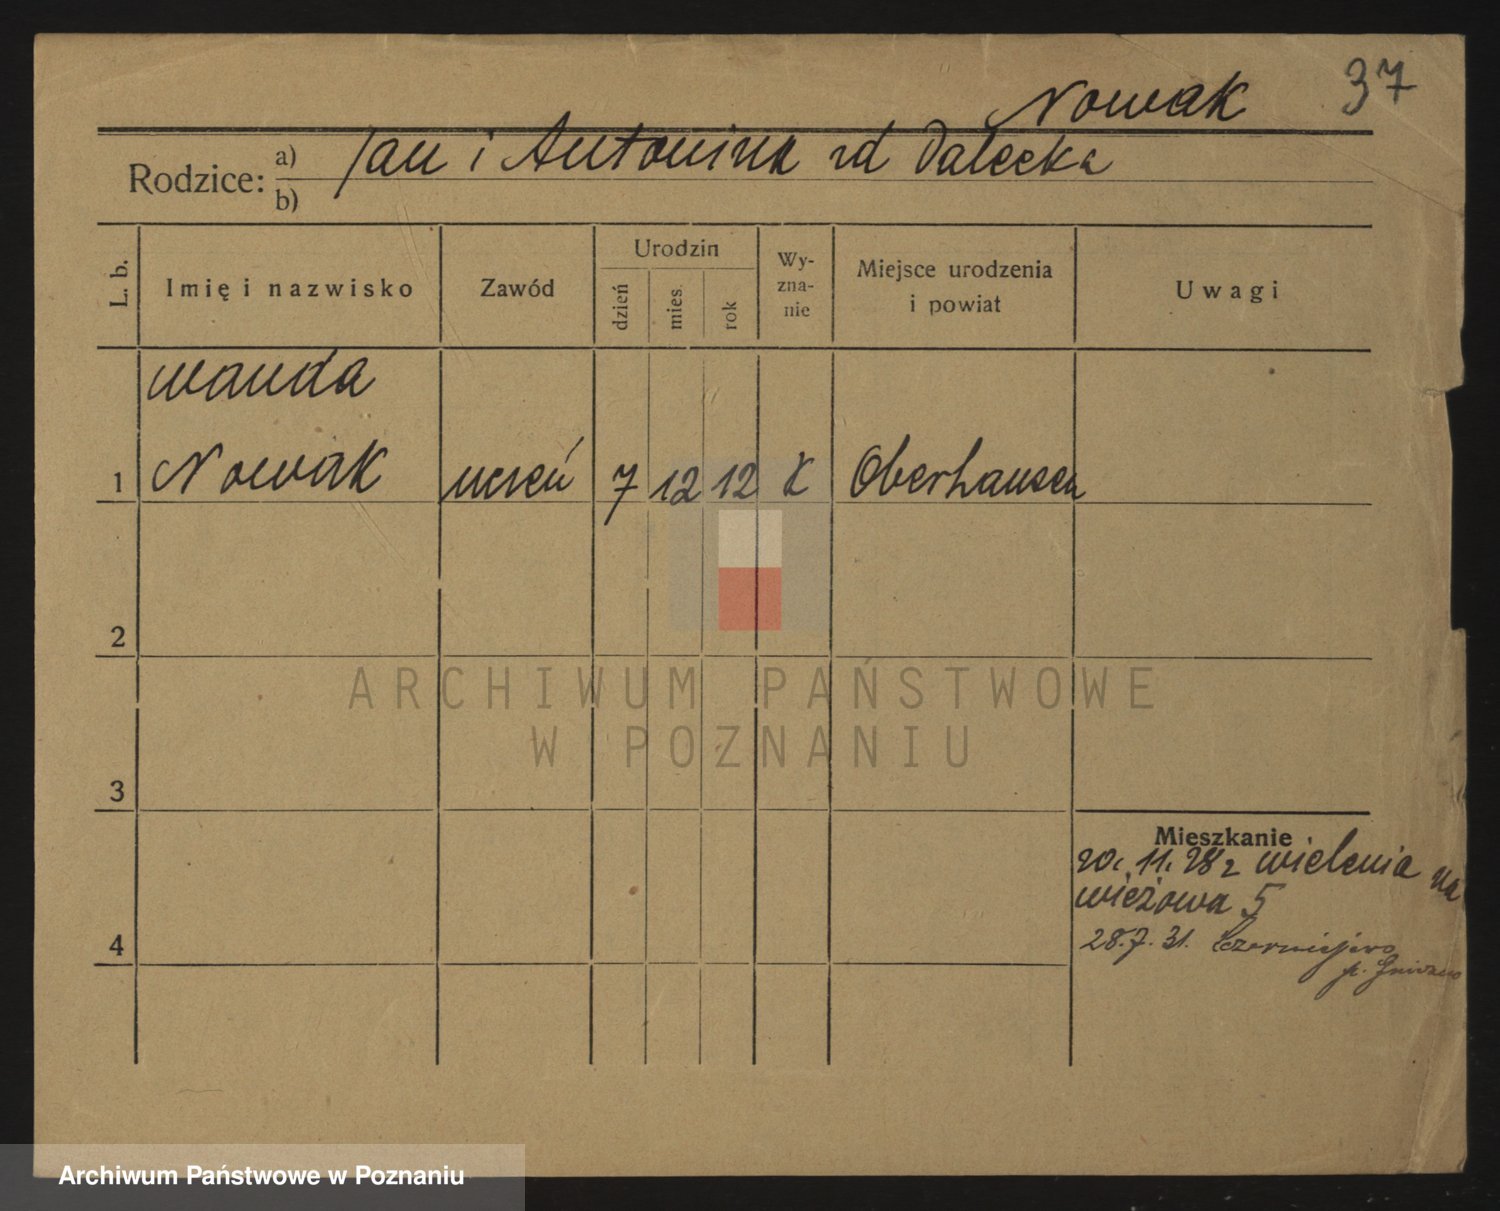 Nowak 37
Rodzice: a) Jan i Antonina rd Dalecka
b)
L. b. Imię i nazwisko Zawód Urodzin dzień mies. rok Wy-zna-nie Miejsce urodzenia i powiat Uwagi
Wanda
1 Nowak uczeń 7 12 12 K Oberhausen
2
ARCHIWUM PAŃSTWOWE
W POZNANIU
3
Mieszkanie
20. 11. 28 z Wielenia na
Wieżowa 5
4 28.7.31. Czerniejewo
p. Gniezno
Archiwum Państwowe w Poznaniu